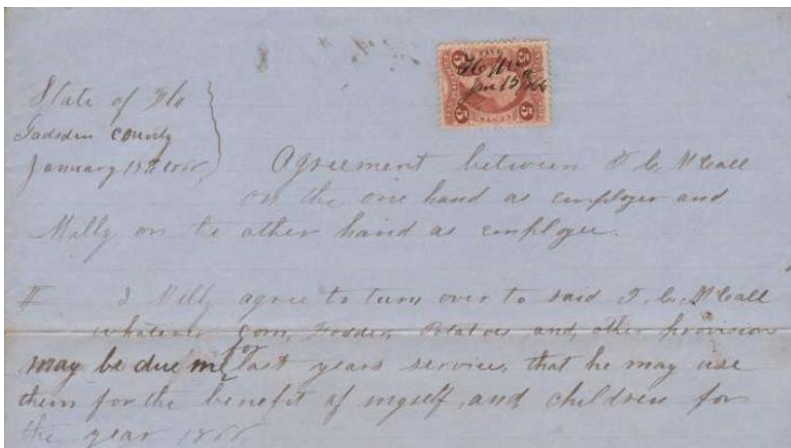 State of Flo
Gadsden County
January 15th 1866
5 5
Jan 15th 66
5 5
Agreement between T. C. McCall
on the one hand as employer and
Milly on the other hand as employee.
I Milly agree to turn over to said T. C. McCall
whatever corn, Fodder, Potatoes and, other provision
may be due me for last years service, that he may use
them for the benefit of myself, and children for
the year 1866